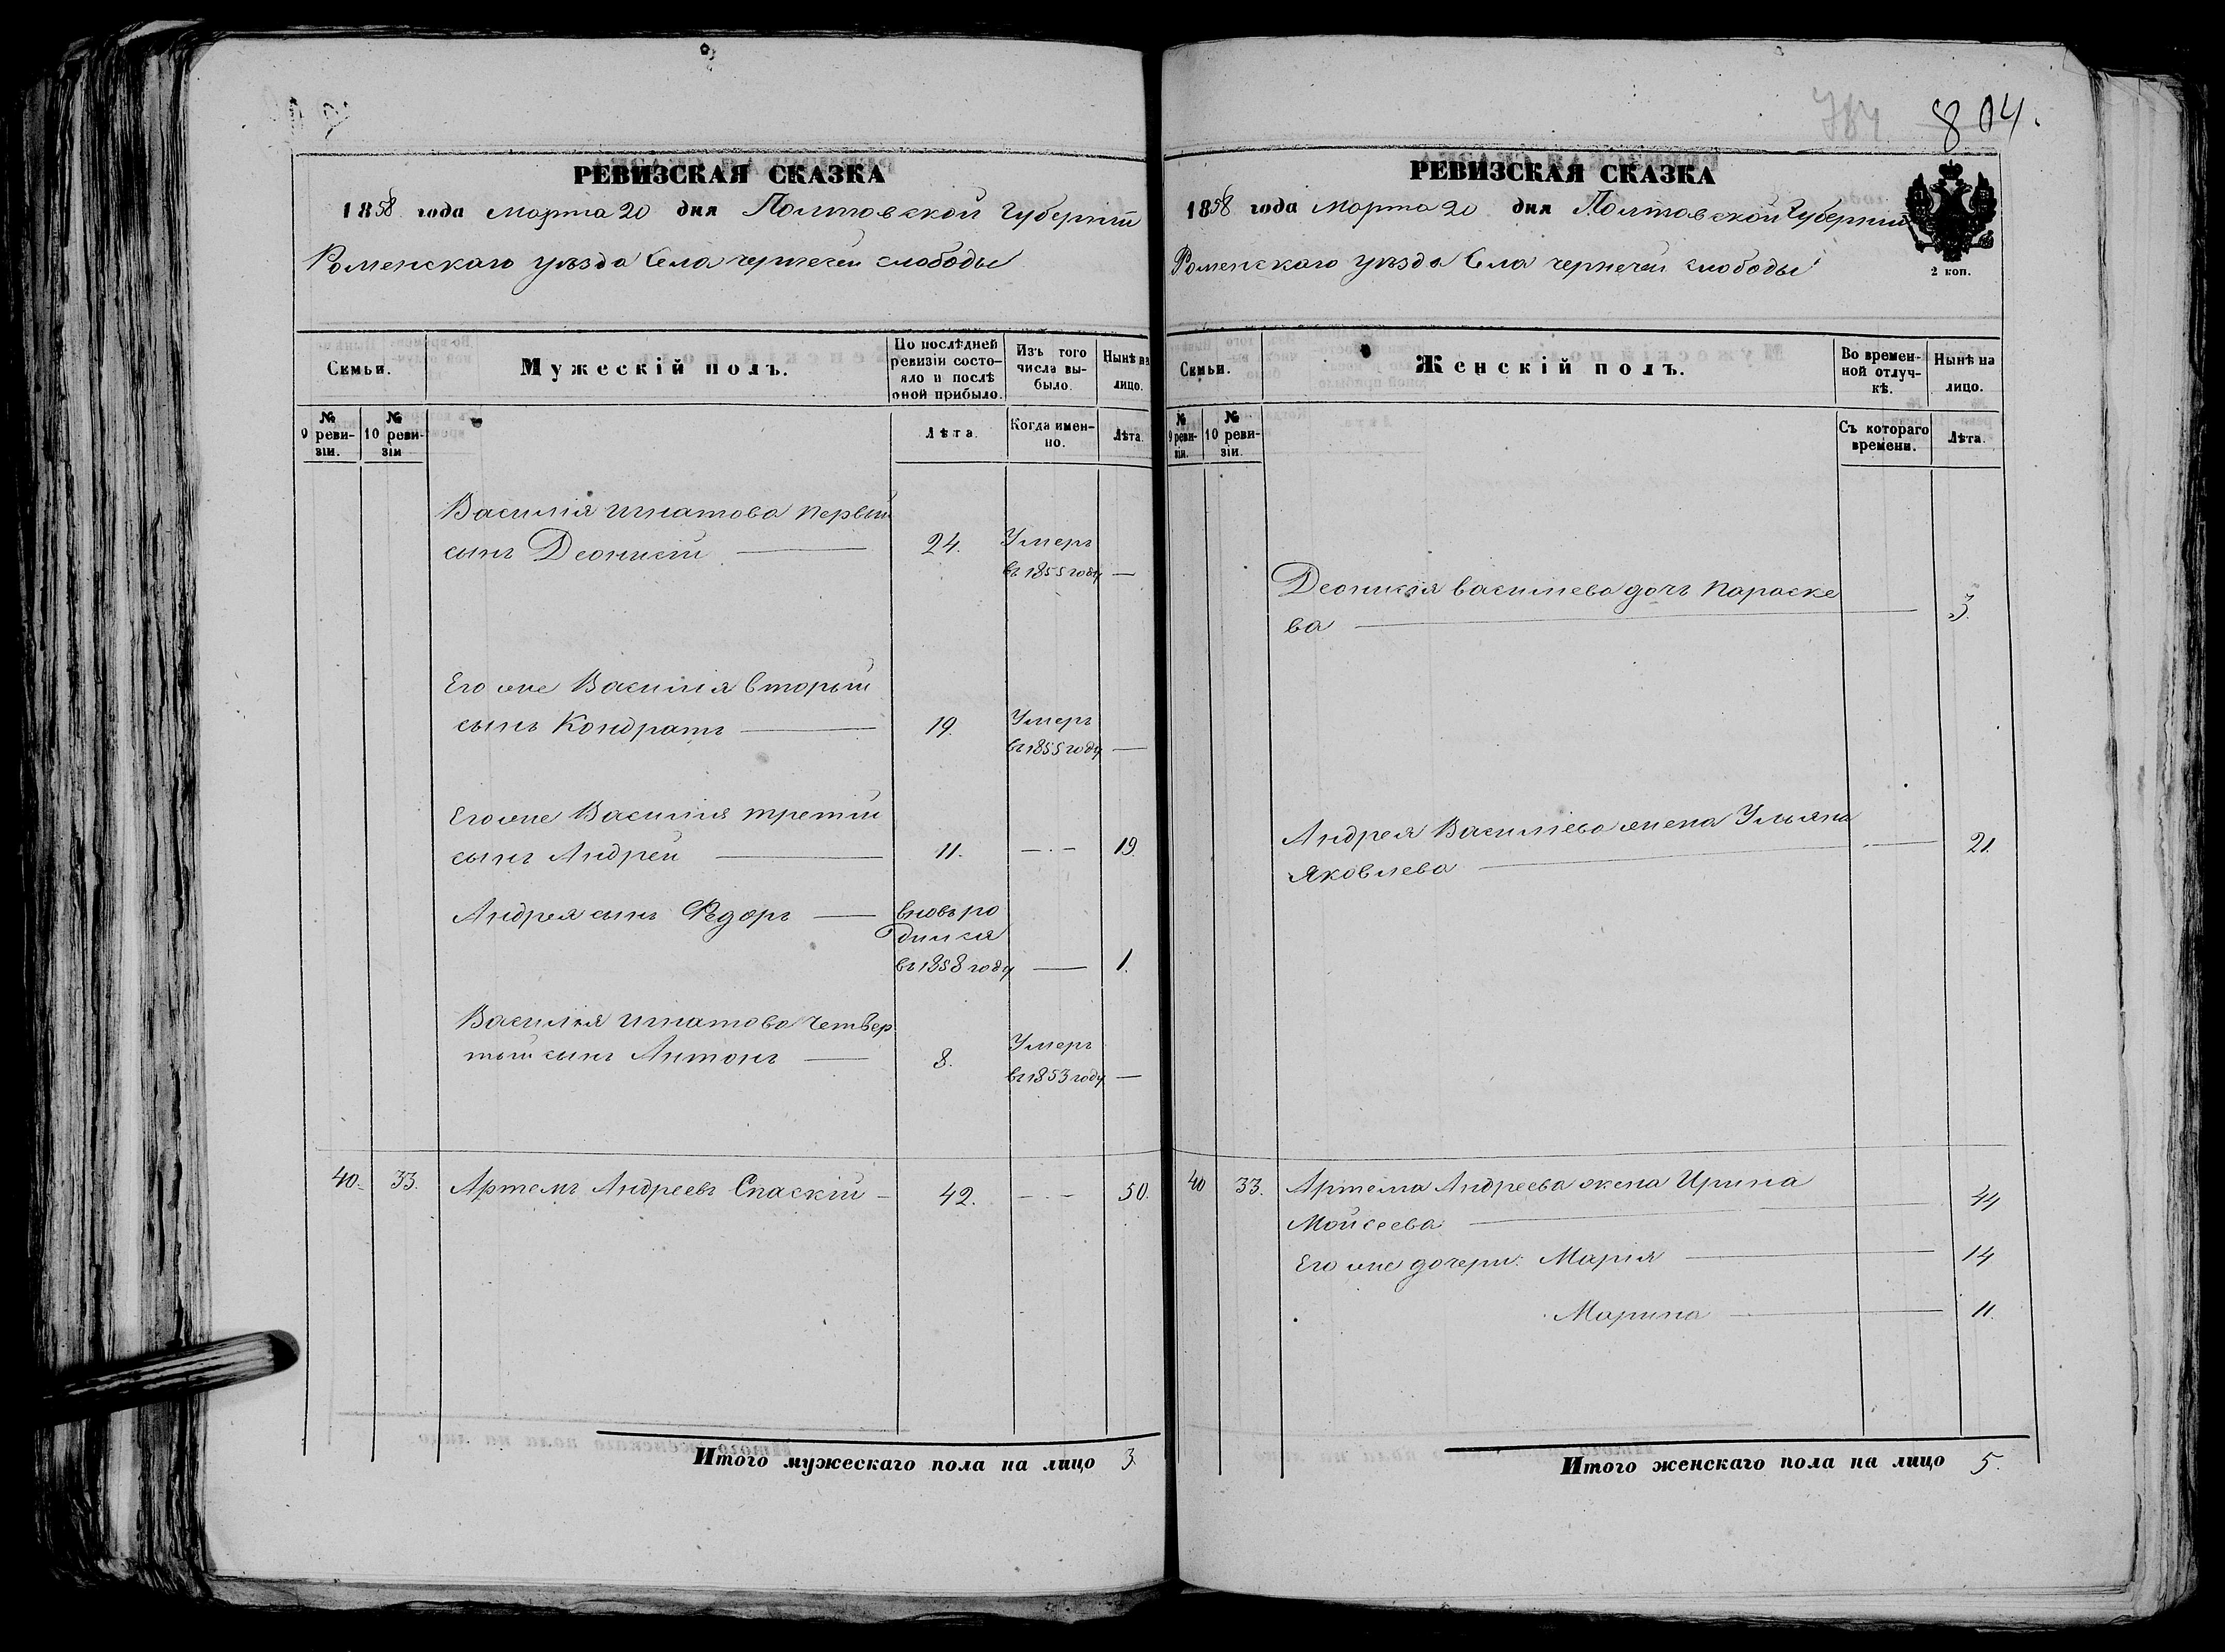 784 804.
РЕВИЗСКАЯ СКАЗКА
1858 года Марта 20 дня Полтавской Губерніи
Роменскаго уѣзда Села чернечей слободы
Семьи.
Мужескій полъ.
По послѣдней ревизіи состо-
яло и послѣ
оной прибыло.
Изъ того
числа вы-
было.
Нынѣ на
лицо.
№
9 реви-
зіи.
№
10 реви-
зіи
Лѣта.
Когда имен-
но.
Лѣта.
Василія игнатова первый
сынъ Деонисій 24. Умеръ
въ 1855 году —
Его же Василія вторый
сынъ Кондратъ 19. Умеръ
въ 1855 году —
Его же Василія третій
сынъ Андрей 11. — · — 19.
Андрея сынъ Ѳедоръ вновь ро
дился
въ 1858 году — 1.
Василія игнатова четвер
тый сынъ Антонъ 8. Умеръ
въ 1853 году —
40. 33. Артемъ Андреевъ Спаскій 42. — · — 50.
Итого мужескаго пола на лицо 3.
РЕВИЗСКАЯ СКАЗКА
1858 года Марта 20 дня Полтавской Губерніи
Роменскаго уѣзда Села чернечей слободы
2 коп.
Семьи.
Женскій полъ.
Во времен-
ной отлуч-
кѣ.
Нынѣ на
лицо.
№
9 реви-
зіи.
№
10 реви-
зіи.
Съ котораго
времени.
Лѣта.
Деонисія василиева дочь Параске
ва — 3.
Андрея Василіева жена Ульяна
Яковлева — 21.
40 33. Артема Андреева жена Ирина
Мойсеева — 44
Его же дочери: Марія — 14
Марина — 11.
Итого женскаго пола на лицо 5.